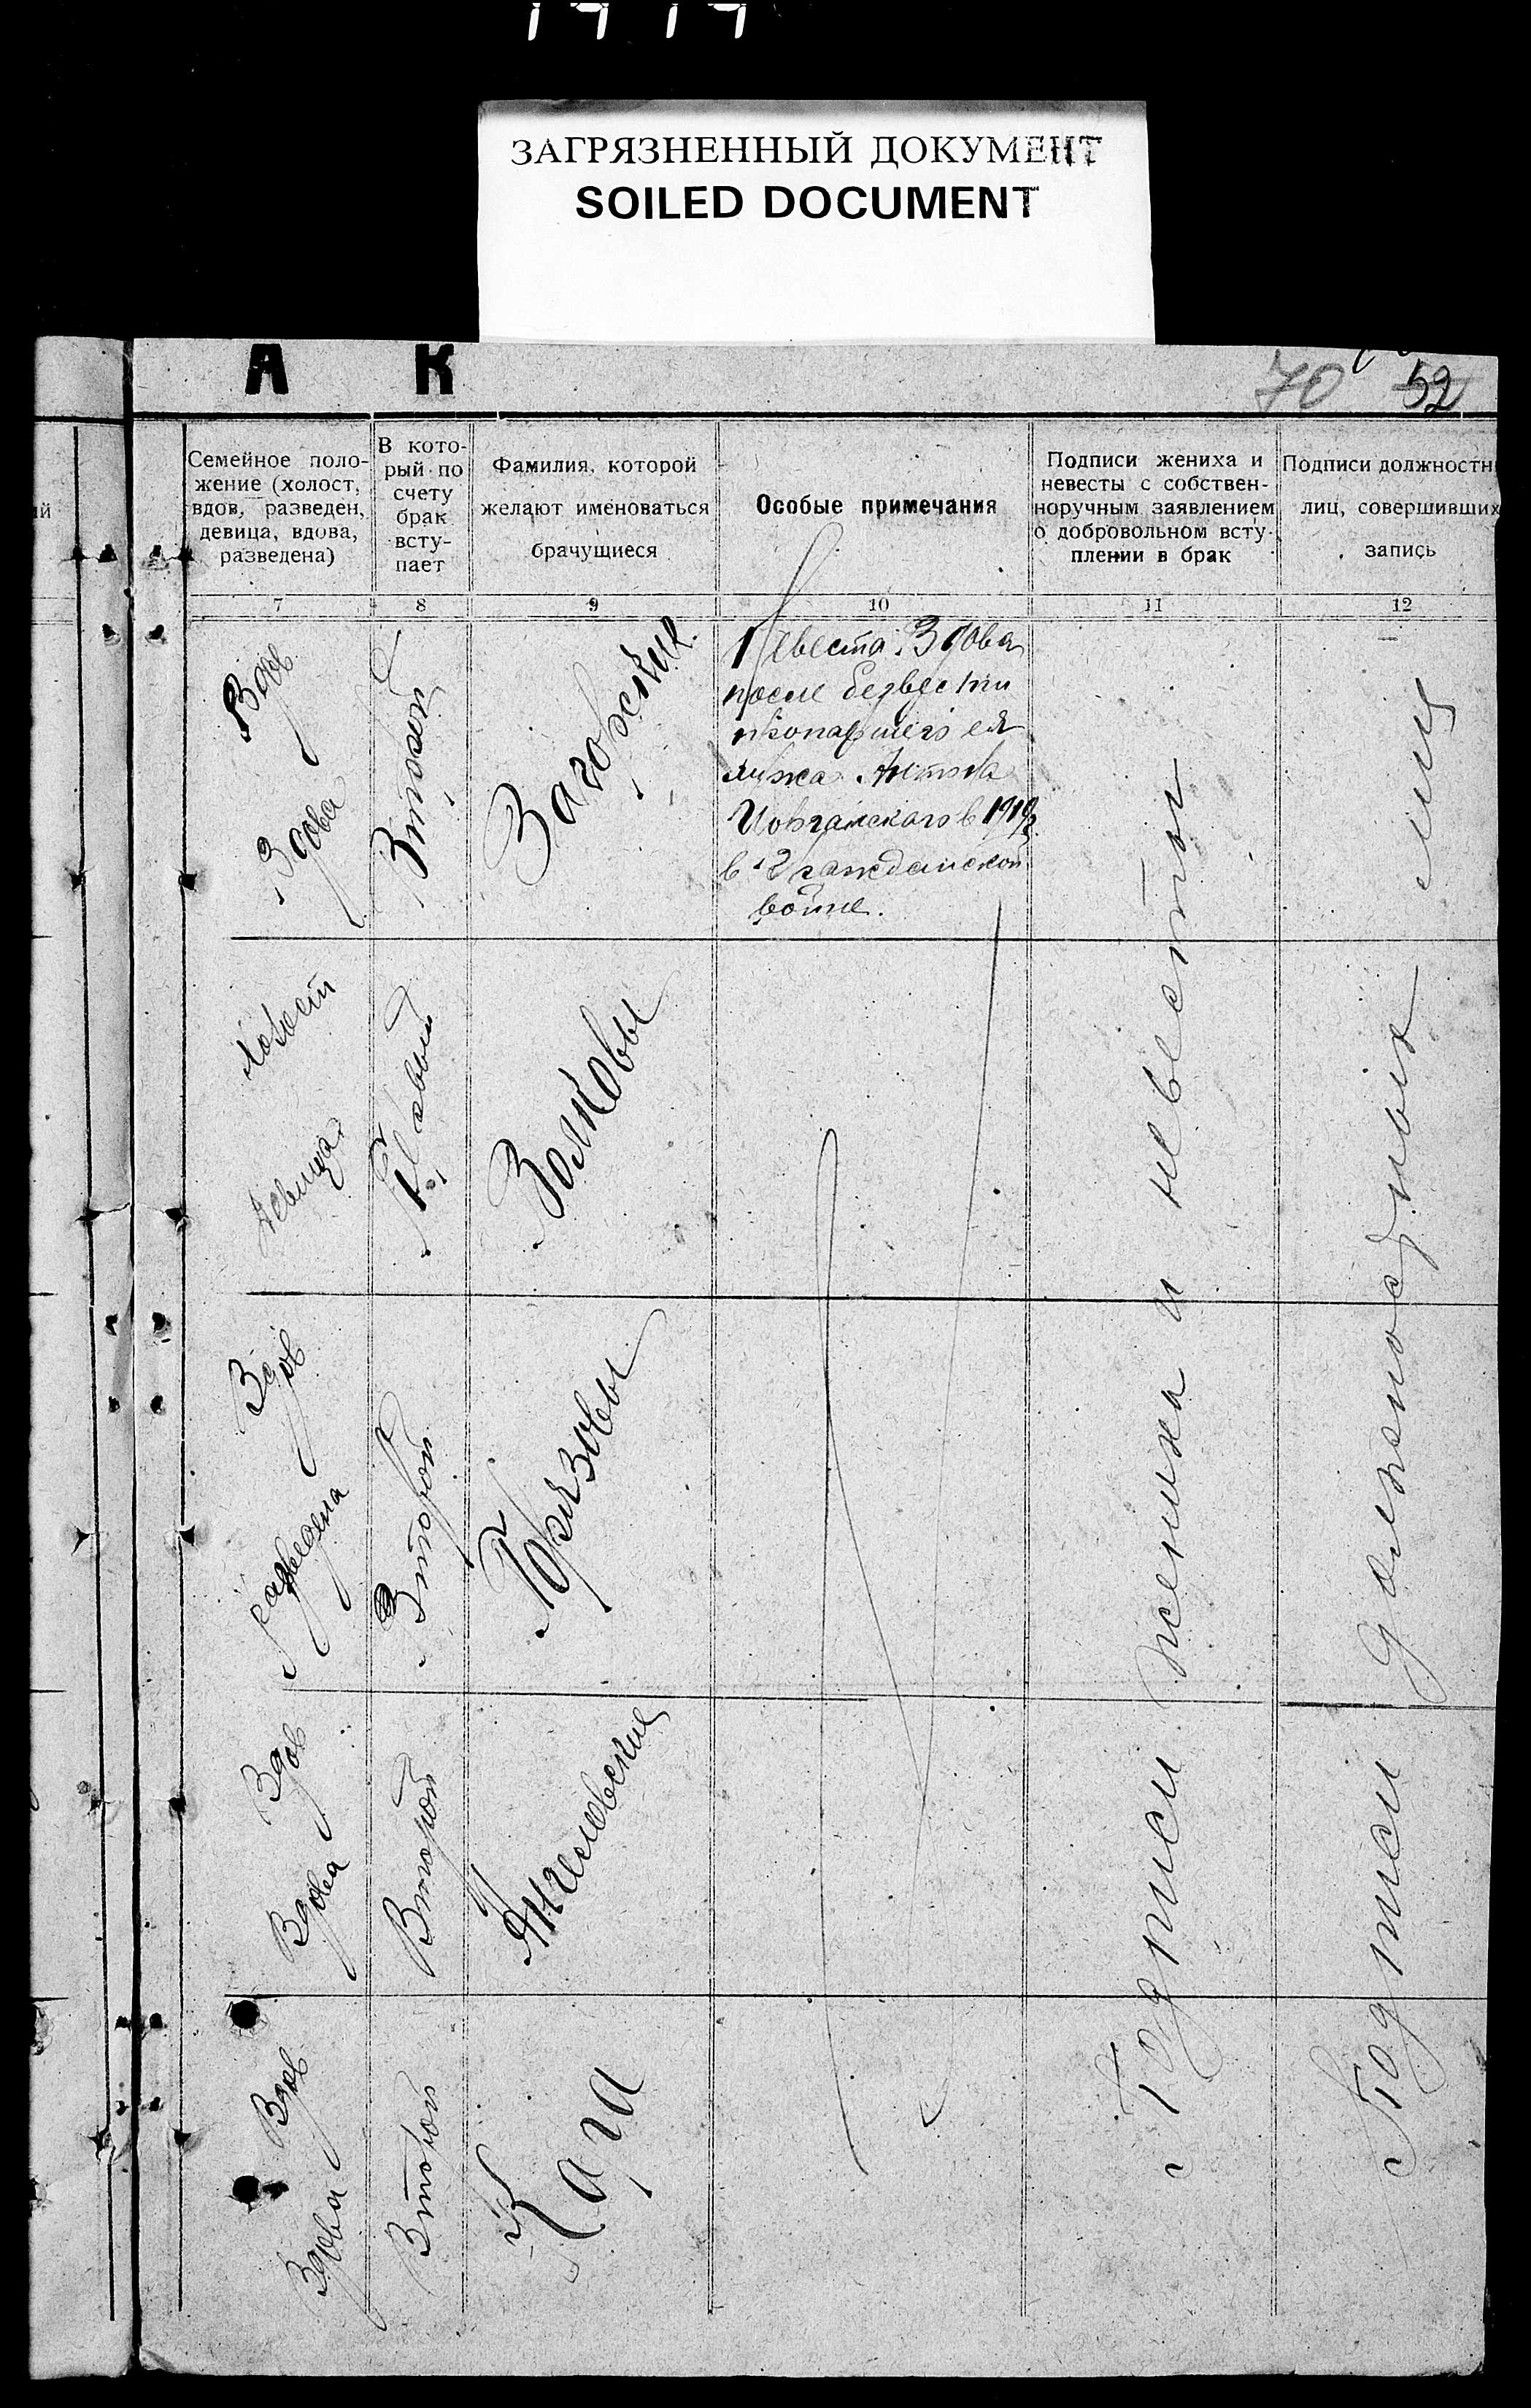 ЗАГРЯЗНЕННЫЙ ДОКУМЕНТ
SOILED DOCUMENT
А К
70 52
Семейное поло-
жение (холост,
вдов, разведен,
девица, вдова,
разведена)
В кото-
рый по
счету
брак
всту-
пает
Фамилия, которой
желают именоваться
брачущиеся
Особые примечания
Подписи жениха и
невесты с собствен-
норучным заявлением
о добровольном всту-
плении в брак
Подписи должностн
лиц, совершивших
запись
7 8 9 10 11 12
Вдов
Вдова
Второй
Загорские
Невеста Вдова
после безвести
пропавшего ея
мужа Антона
в 1919
в гражданской
войне.
Холост
Девица
Первый
Волковы
Вдов
Разведена
Второй
Вдов
Вдова
Второй
Ангеловские
Вдов
Вдова
Второй
Кара
Подписи жениха и невесты
Подписи должностных лиц